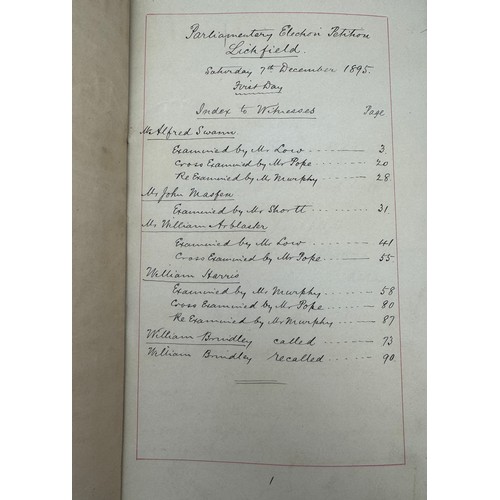 Parliamentary Election Petition
Lichfield.
Saturday 7th December 1895.
First Day
Index to Witnesses Page
Mr Alfred Swann
Examined by Mr Low 3
Cross Examined by Mr Pope 20
Re Examined by Mr Murphy 28
Mr John Masfen
Examined by Mr Shortt 31
Mr William Arblaster
Examined by Mr Low 41
Cross Examined by Mr Pope 55
William Harris
Examined by Mr Murphy 58
Cross Examined by Mr Pope 80
Re Examined by Mr Murphy 87
William Brindley called 73
William Brindley recalled 90
1